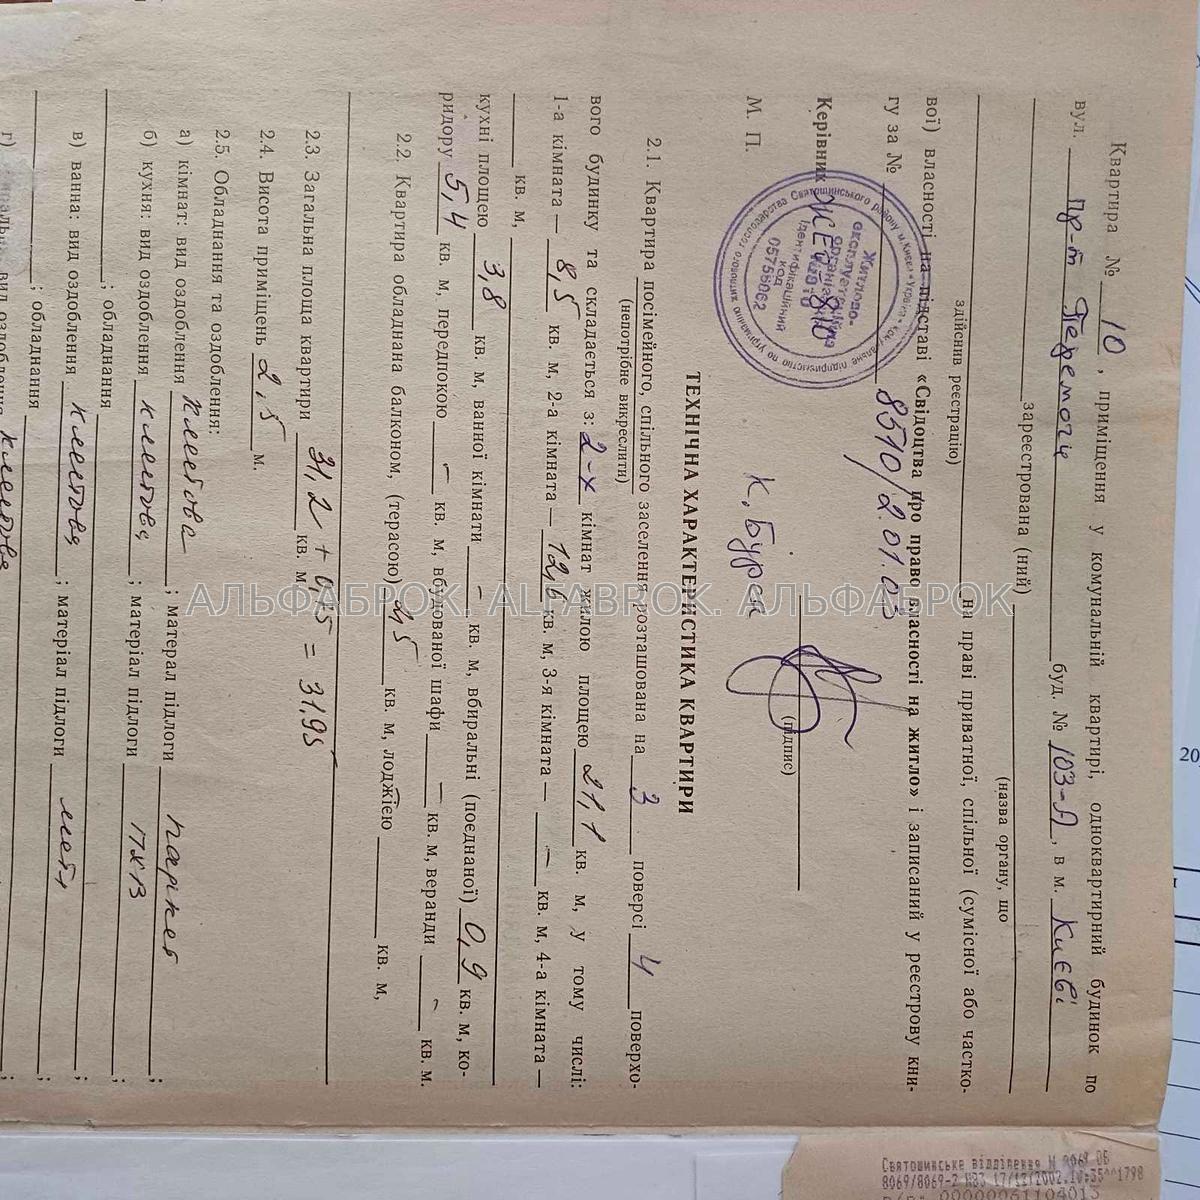 Квартира № 10, приміщення у комунальній квартирі, одноквартирний будинок по
вул. пр-т Перемоги буд. № 103-А, в м. Києві
зареєстрована (ний)
(назва органу, що
здійснив реєстрацію) на праві приватної, спільної (сумісної або частко-
вої) власності на підставі «Свідоцтва про право власності на житло» і записаний у реєстрову кни-
гу за № 8510/2.01.03
Керівник ЖЕО-810
(підпис)
М. П. К. Бурса
Житлово-
експлуатаційна
організація
№810
Ідентифікаційний
код
05756062
ТЕХНІЧНА ХАРАКТЕРИСТИКА КВАРТИРИ
2.1. Квартира посімейного, спільного заселення розташована на 3 поверсі 4 поверхо-
(непотрібне викреслити)
вого будинку та складається з: 2-х кімнат жилою площею 21,1 кв. м, у тому числі:
1-а кімната — 8,5 кв. м, 2-а кімната — 12,6 кв. м, 3-я кімната — – кв. м, 4-а кімната —
кв. м,
кухні площею 3,8 кв. м, ванної кімнати – кв. м, вбиральні (поєднаної) 0,9 кв. м, ко-
ридору 5,4 кв. м, передпокою – кв. м, вбудованої шафи – кв. м, веранди – кв. м.
2.2. Квартира обладнана балконом, (терасою) 2,5 кв. м, лоджією кв. м,
2.3. Загальна площа квартири 31,2 + 0,75 = 31,95
кв. м.
2.4. Висота приміщень 2,5 м.
2.5. Обладнання та оздоблення:
а) кімнат: вид оздоблення клейова; матерал підлоги паркет;
б) кухня: вид оздоблення клейова; матеріал підлоги ПХВ
; обладнання ;
в) ванна: вид оздоблення клейова; матеріал підлоги метл;
; обладнання ;
вид оздоблення клейова
АЛЬФАБРОК. ALFABROK. АЛЬФАБРОК
20
Святошинське відділення N 8069 ОБ
8069/8069-2 N83 17/12/2002.10:35 1798